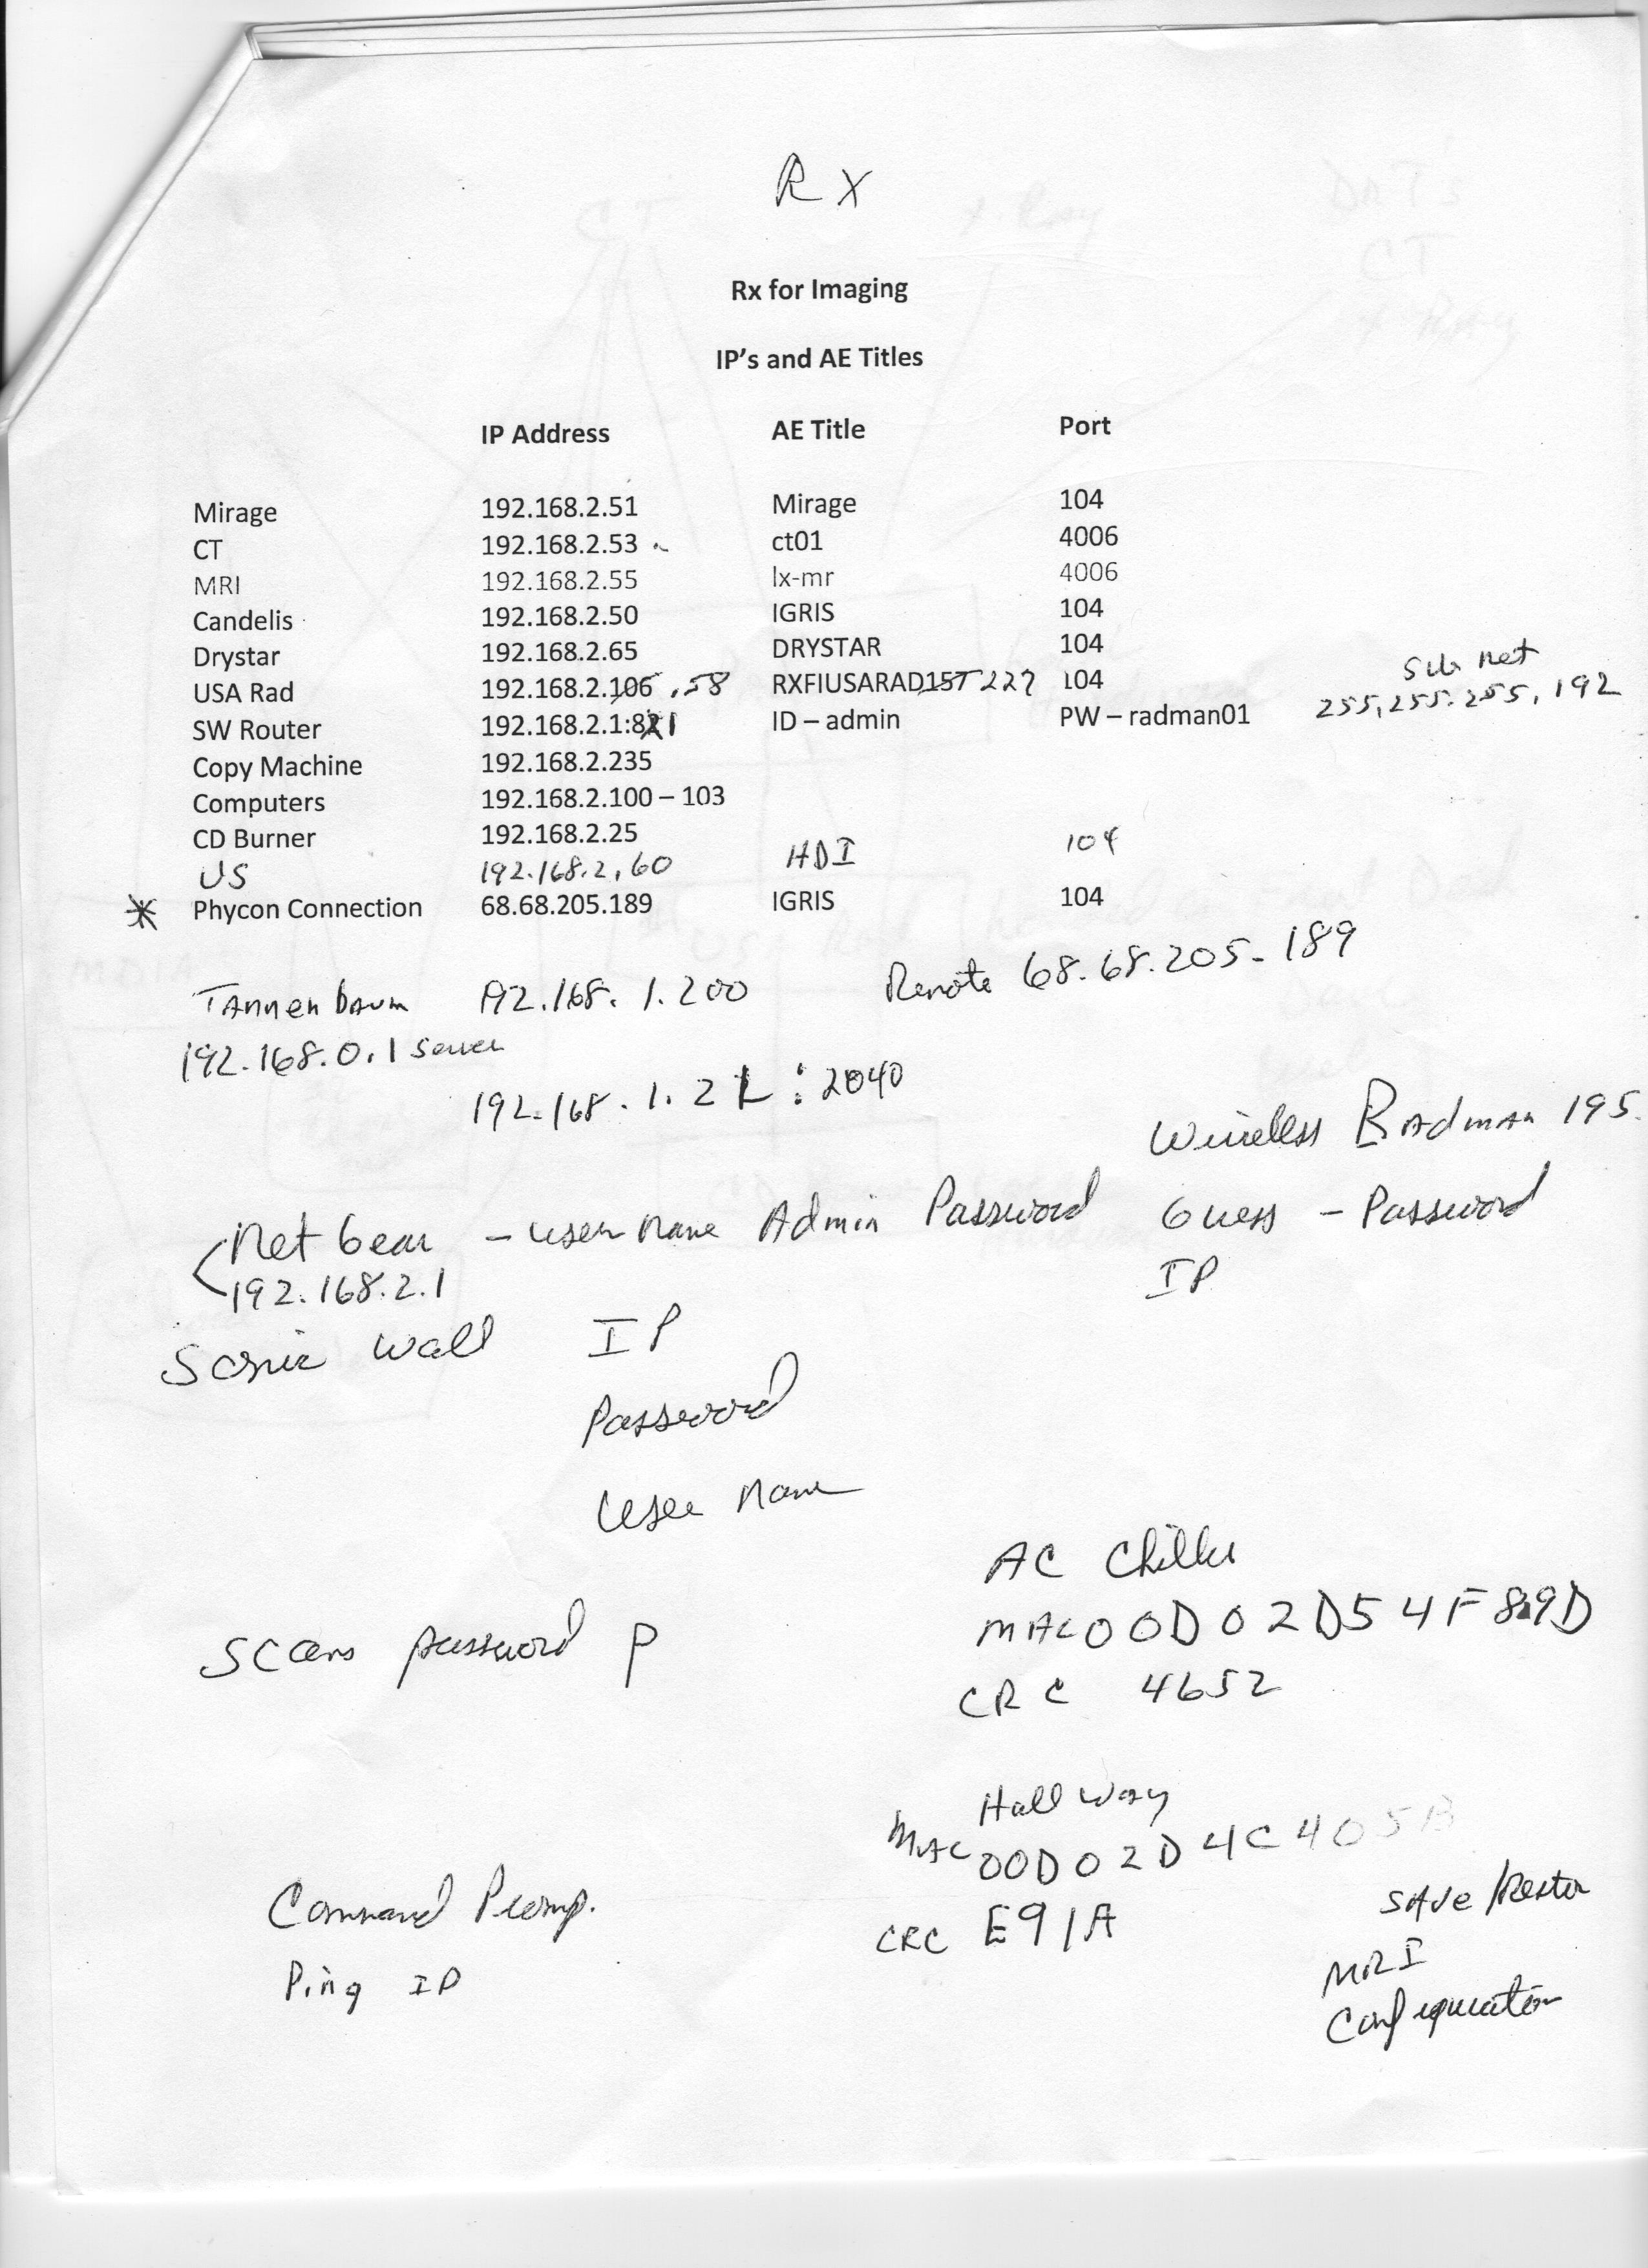 RX
Rx for Imaging
IP's and AE Titles
IP Address AE Title Port
Mirage 192.168.2.51 Mirage 104
CT 192.168.2.53 ct01 4006
MRI 192.168.2.55 lx-mr 4006
Candelis 192.168.2.50 IGRIS 104
Drystar 192.168.2.65 DRYSTAR 104
Sub net
USA Rad 192.168.2.106 .58 RXFIUSARAD1ST 227 104 255.255.255.192
SW Router 192.168.2.1:81 ID – admin PW – radman01
Copy Machine 192.168.2.235
Computers 192.168.2.100 – 103
CD Burner 192.168.2.25
US 192.168.2.60 HDI 104
* Phycon Connection 68.68.205.189 IGRIS 104
Tannenbaum 192.168.1.200 Remote 68.68.205.189
192.168.0.1 server
192.168.1.2 :2040
Wireless Radman 195.
Net Gear - user name Admin Password Guess - Password
192.168.2.1 IP
Sonic Wall IP
Password
User Name
AC Chiller
MAC 00D02D54F89D
Scans password p
CRC 4652
Hall Way
MAC 00D02D4C405B
Command Promp.
CRC E91A
Save/Restor
Ping IP
MRI
Configuration